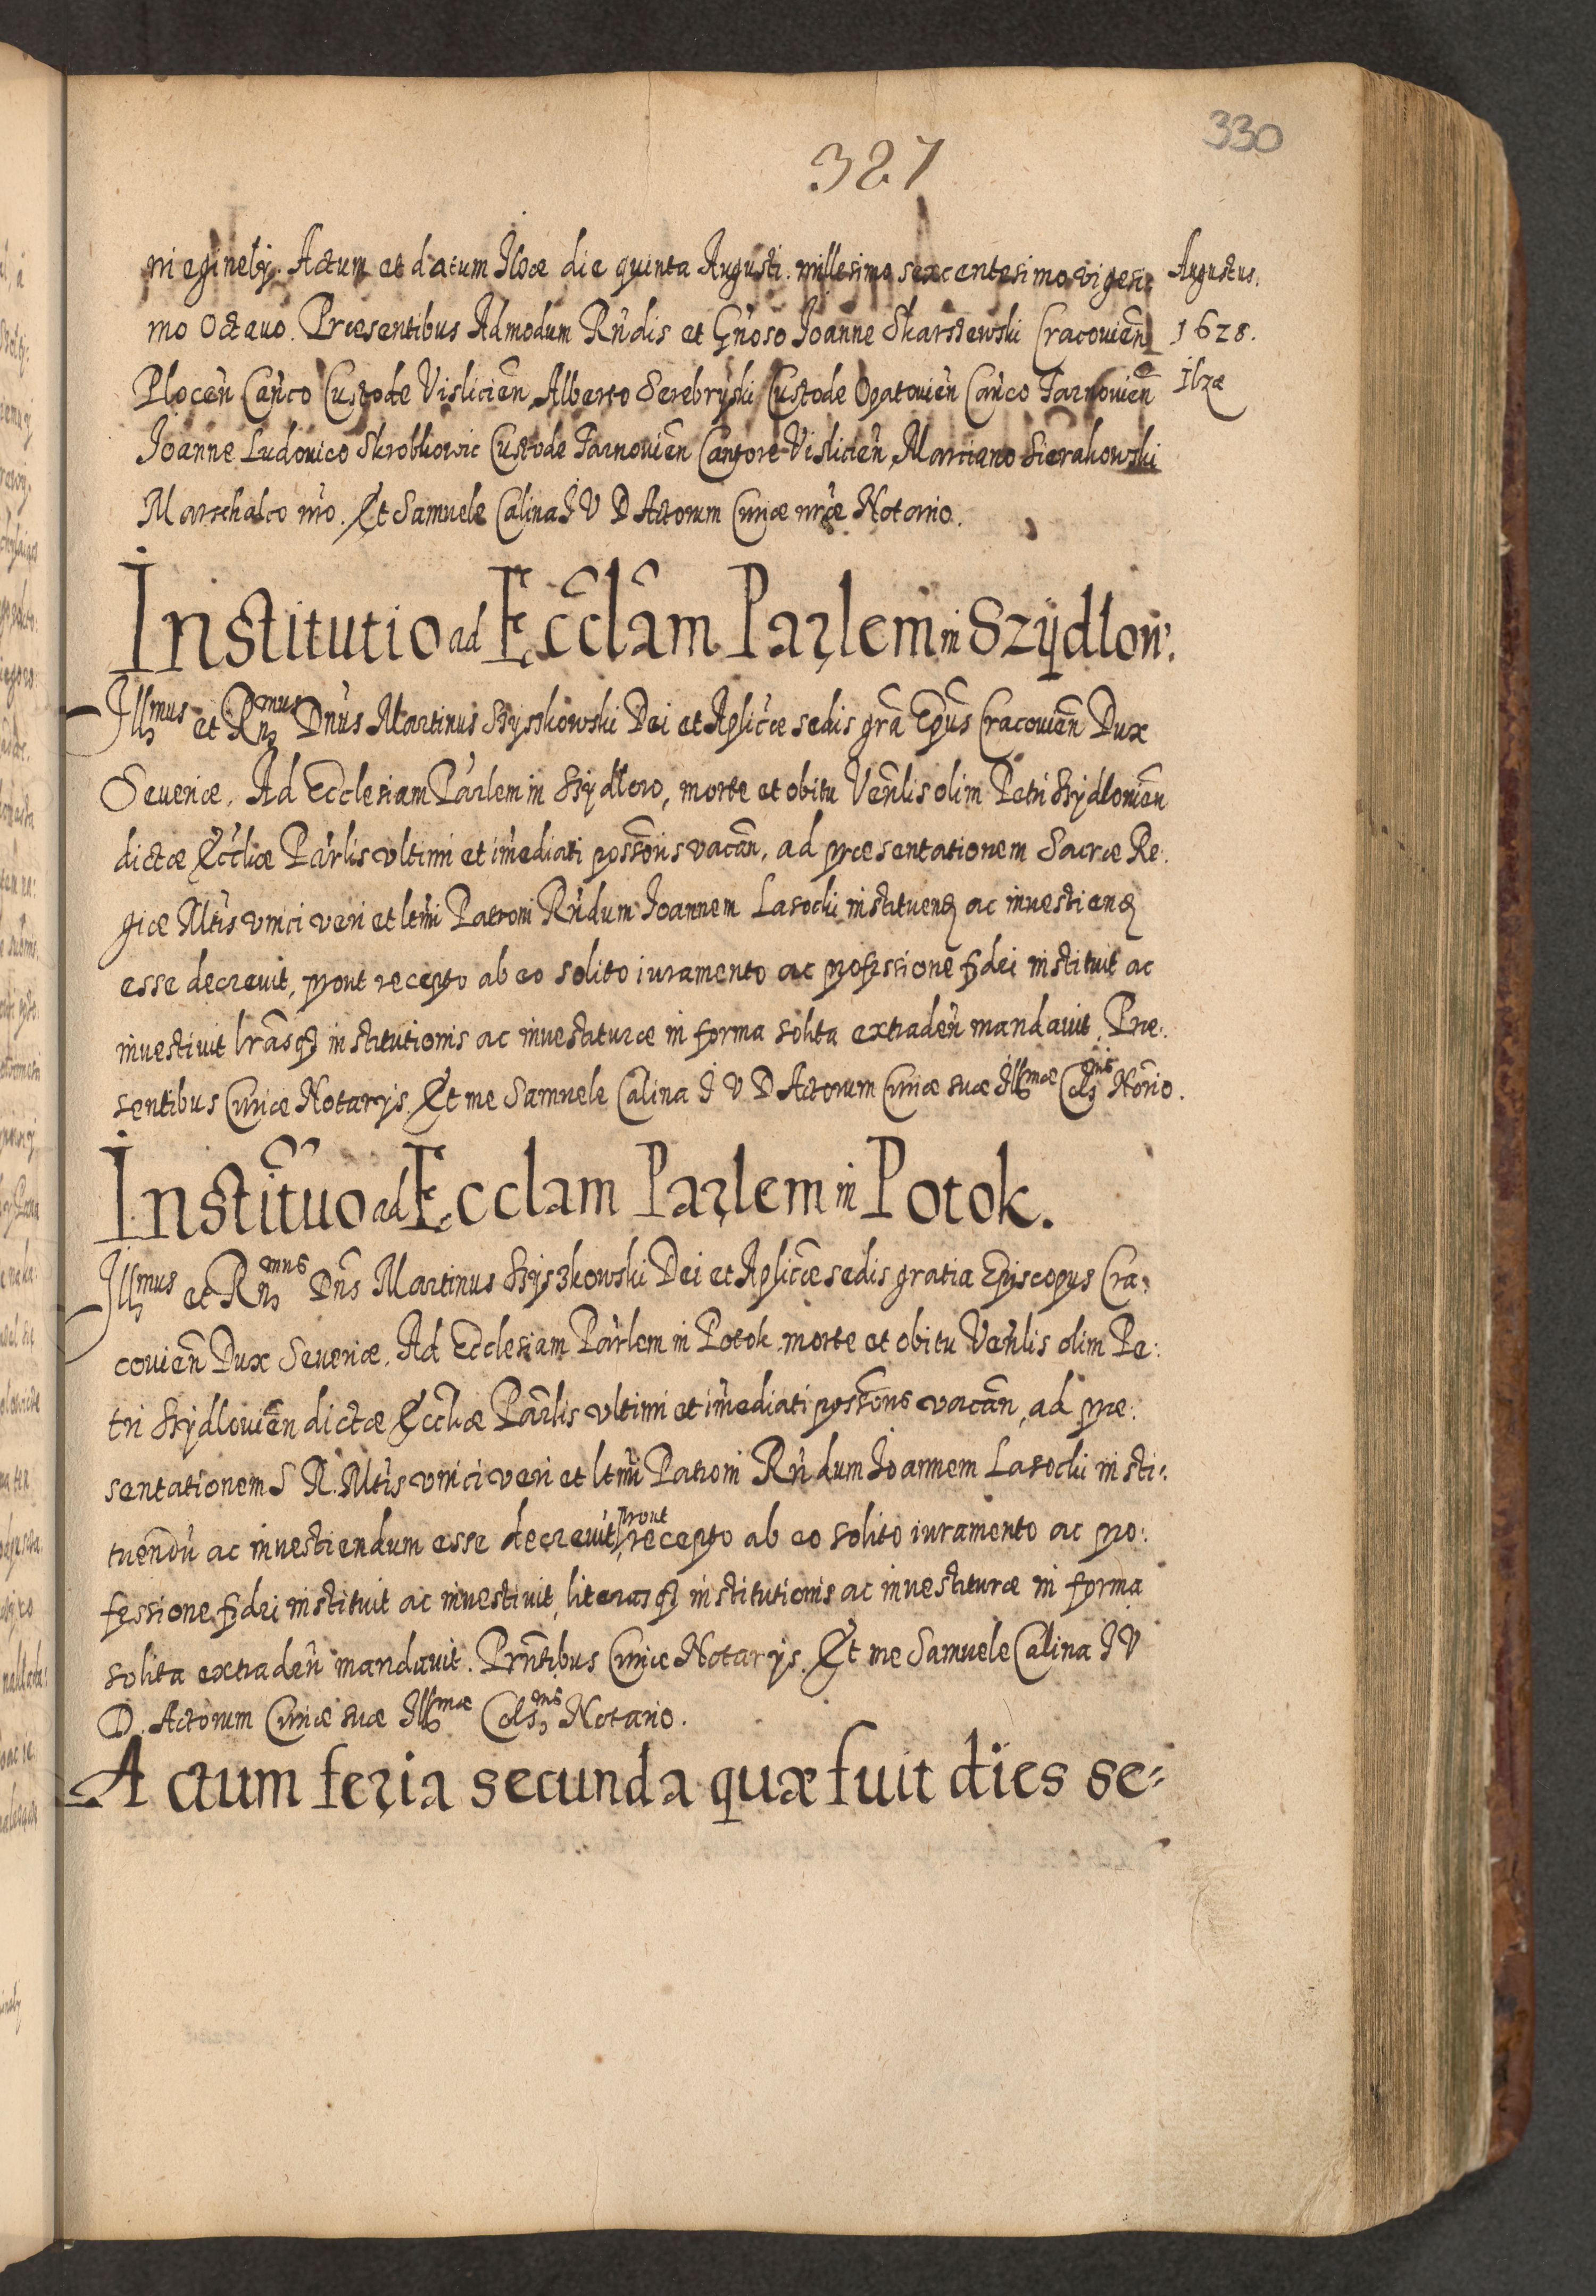 330
387
mieginely. Actum et datum Ilzæ die quinta Augusti. millesimo sexcentesimo vigesi:
Augustus.
mo Octauo. Præsentibus Admodum Rndis et Gnoso Ioanne Skarszewski Cracouien
1628.
Plocen Canco Custode Vislicien, Alberto Serebryski Custode Opatouien Canco Tarnouien
Ilzæ
Ioanne Ludouico Skrobkowic Custode Tarnouien Cantore Vislicien, Marciano Sierakowski
Marschalco nro. Et Samuele Calina I V D Actorum Curiæ nræ Notario.
Institutio ad Ecclam Parlem in Szydlow.
Illmus et Rnmus Dnus Martinus Szyszkowski Dei et Aplicæ sedis gra Epus Cracouien Dux
Seueriæ. Ad Ecclesiam Parlem in Szydlow, morte et obitu Venlis olim Petri Szydlouien
dictæ Eccliæ Parlis vltimi et imediati possoris vacan, ad præsentationem Sacræ Re:
giæ Mtis vnici veri et ltmi Patroni Rndum Ioannem Lasocki instituend ac inuestiend
esse decreuit, prout recepto ab eo solito iuramento ac professione fidei instituit ac
inuestiuit lrasq institutionis ac inuestituræ in forma solita extraden mandauit. Præ:
sentibus Curiæ Notarys. Et me Samuele Calina I V D Actorum Curiæ suæ Illmæ Celsnis Norio.
Instituo ad Ecclam Parlem in Potok.
Illmus et Rnmus Dns Martinus Szyszkowski Dei et Aplicæ sedis gratia Episcopus Cra:
couien Dux Seueriæ. Ad Ecclesiam Parlem in Potok morte et obitu Venlis olim Pe:
tri Szydlouien dictæ Eccliæ Parlis vltimi et imediati possoris vacan, ad præ:
sentationem S R. Mtis vnici veri et ltmi Patroni Rndum Ioannem Lasocki insti:
tuendu ac inuestiendum esse decreuit, prout recepto ab eo solito iuramento ac pro:
fessione fidei instituit ac inuestiuit, literasq institutionis ac inuestituræ in forma
solita extraden mandauit. Prntibus Curiæ Notarys. Et me Samuele Calina I V
D. Actorum Curiæ suæ Illmæ Celsnis Notario.
Actum feria secunda quæ fuit dies se=